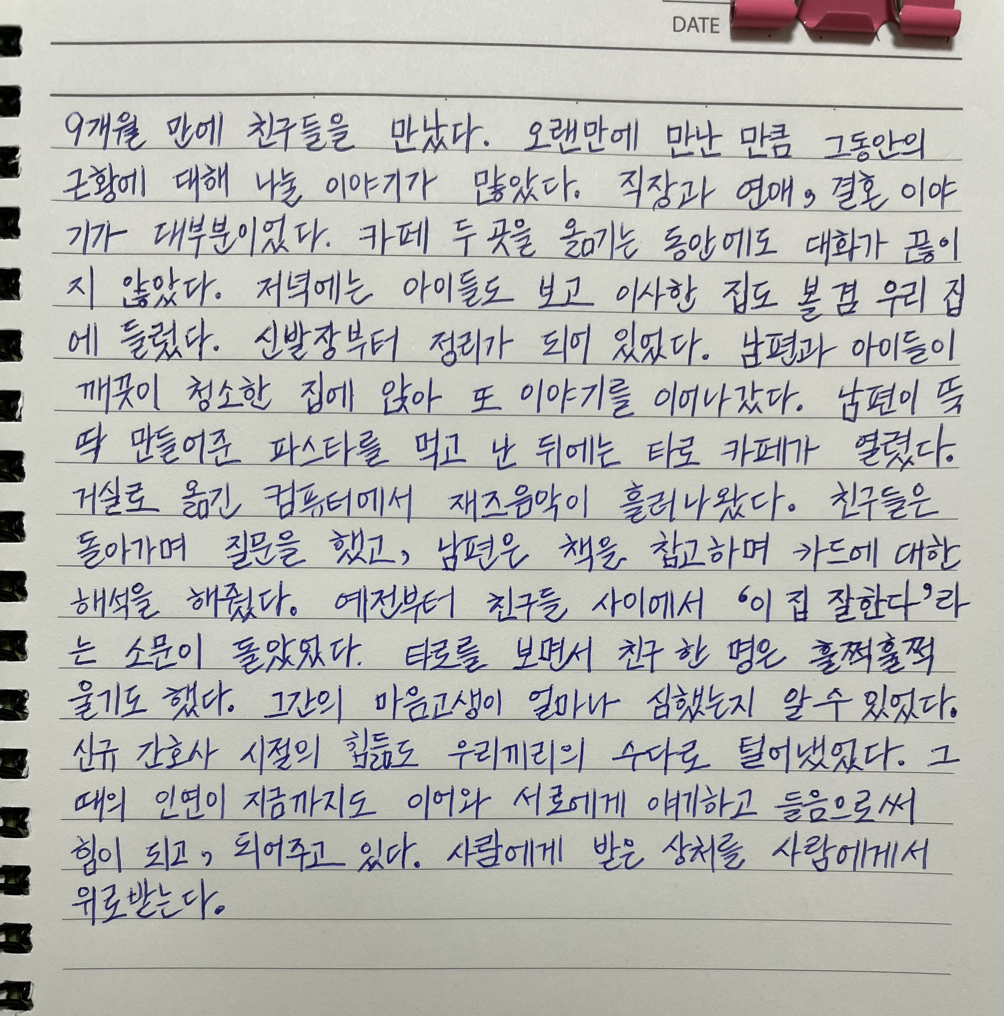 DATE
9개월 만에 친구들을 만났다. 오랜만에 만난 만큼 그동안의
근황에 대해 나눌 이야기가 많았다. 직장과 연애, 결혼 이야
기가 대부분이었다. 카페 두 곳을 옮기는 동안에도 대화가 끊이
지 않았다. 저녁에는 아이들도 보고 이사한 집도 볼 겸 우리 집
에 들렀다. 신발장부터 정리가 되어 있었다. 남편과 아이들이
깨끗이 청소한 집에 앉아 또 이야기를 이어나갔다. 남편이 뚝
딱 만들어준 파스타를 먹고 난 뒤에는 타로 카페가 열렸다.
거실로 옮긴 컴퓨터에서 재즈음악이 흘러나왔다. 친구들은
돌아가며 질문을 했고, 남편은 책을 참고하며 카드에 대한
해석을 해줬다. 예전부터 친구들 사이에서 ‘이 집 잘한다’라
는 소문이 돌았었다. 타로를 보면서 친구 한 명은 훌쩍훌쩍
울기도 했다. 그간의 마음고생이 얼마나 심했는지 알 수 있었다.
신규 간호사 시절의 힘듦도 우리끼리의 수다로 털어냈었다. 그
때의 인연이 지금까지도 이어와 서로에게 얘기하고 들음으로써
힘이 되고, 되어주고 있다. 사람에게 받은 상처를 사람에게서
위로받는다.